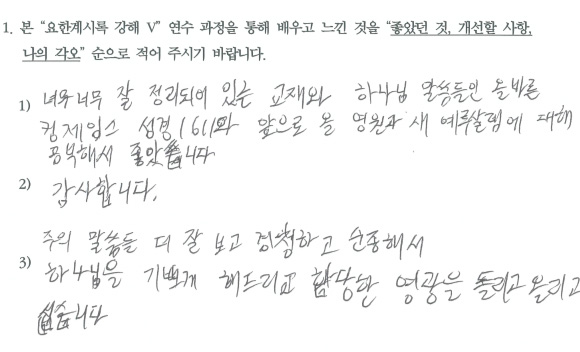 1. 본 “요한계시록 강해 V” 연수 과정을 통해 배우고 느낀 것을 “좋았던 것, 개선할 사항,
나의 각오” 순으로 적어 주시기 바랍니다.
1) 너무너무 잘 정리되어 있는 교재와 하나님 말씀들인 올바른
킹제임스 성경1611와 앞으로 올 영원과 새 예루살렘에 대해
공부해서 좋았습니다
2) 감사합니다.
주의 말씀들 더 잘 보고 경청하고 순종해서
3) 하나님을 기쁘게 해드리고 합당한 영광을 돌리고 올리고
싶습니다